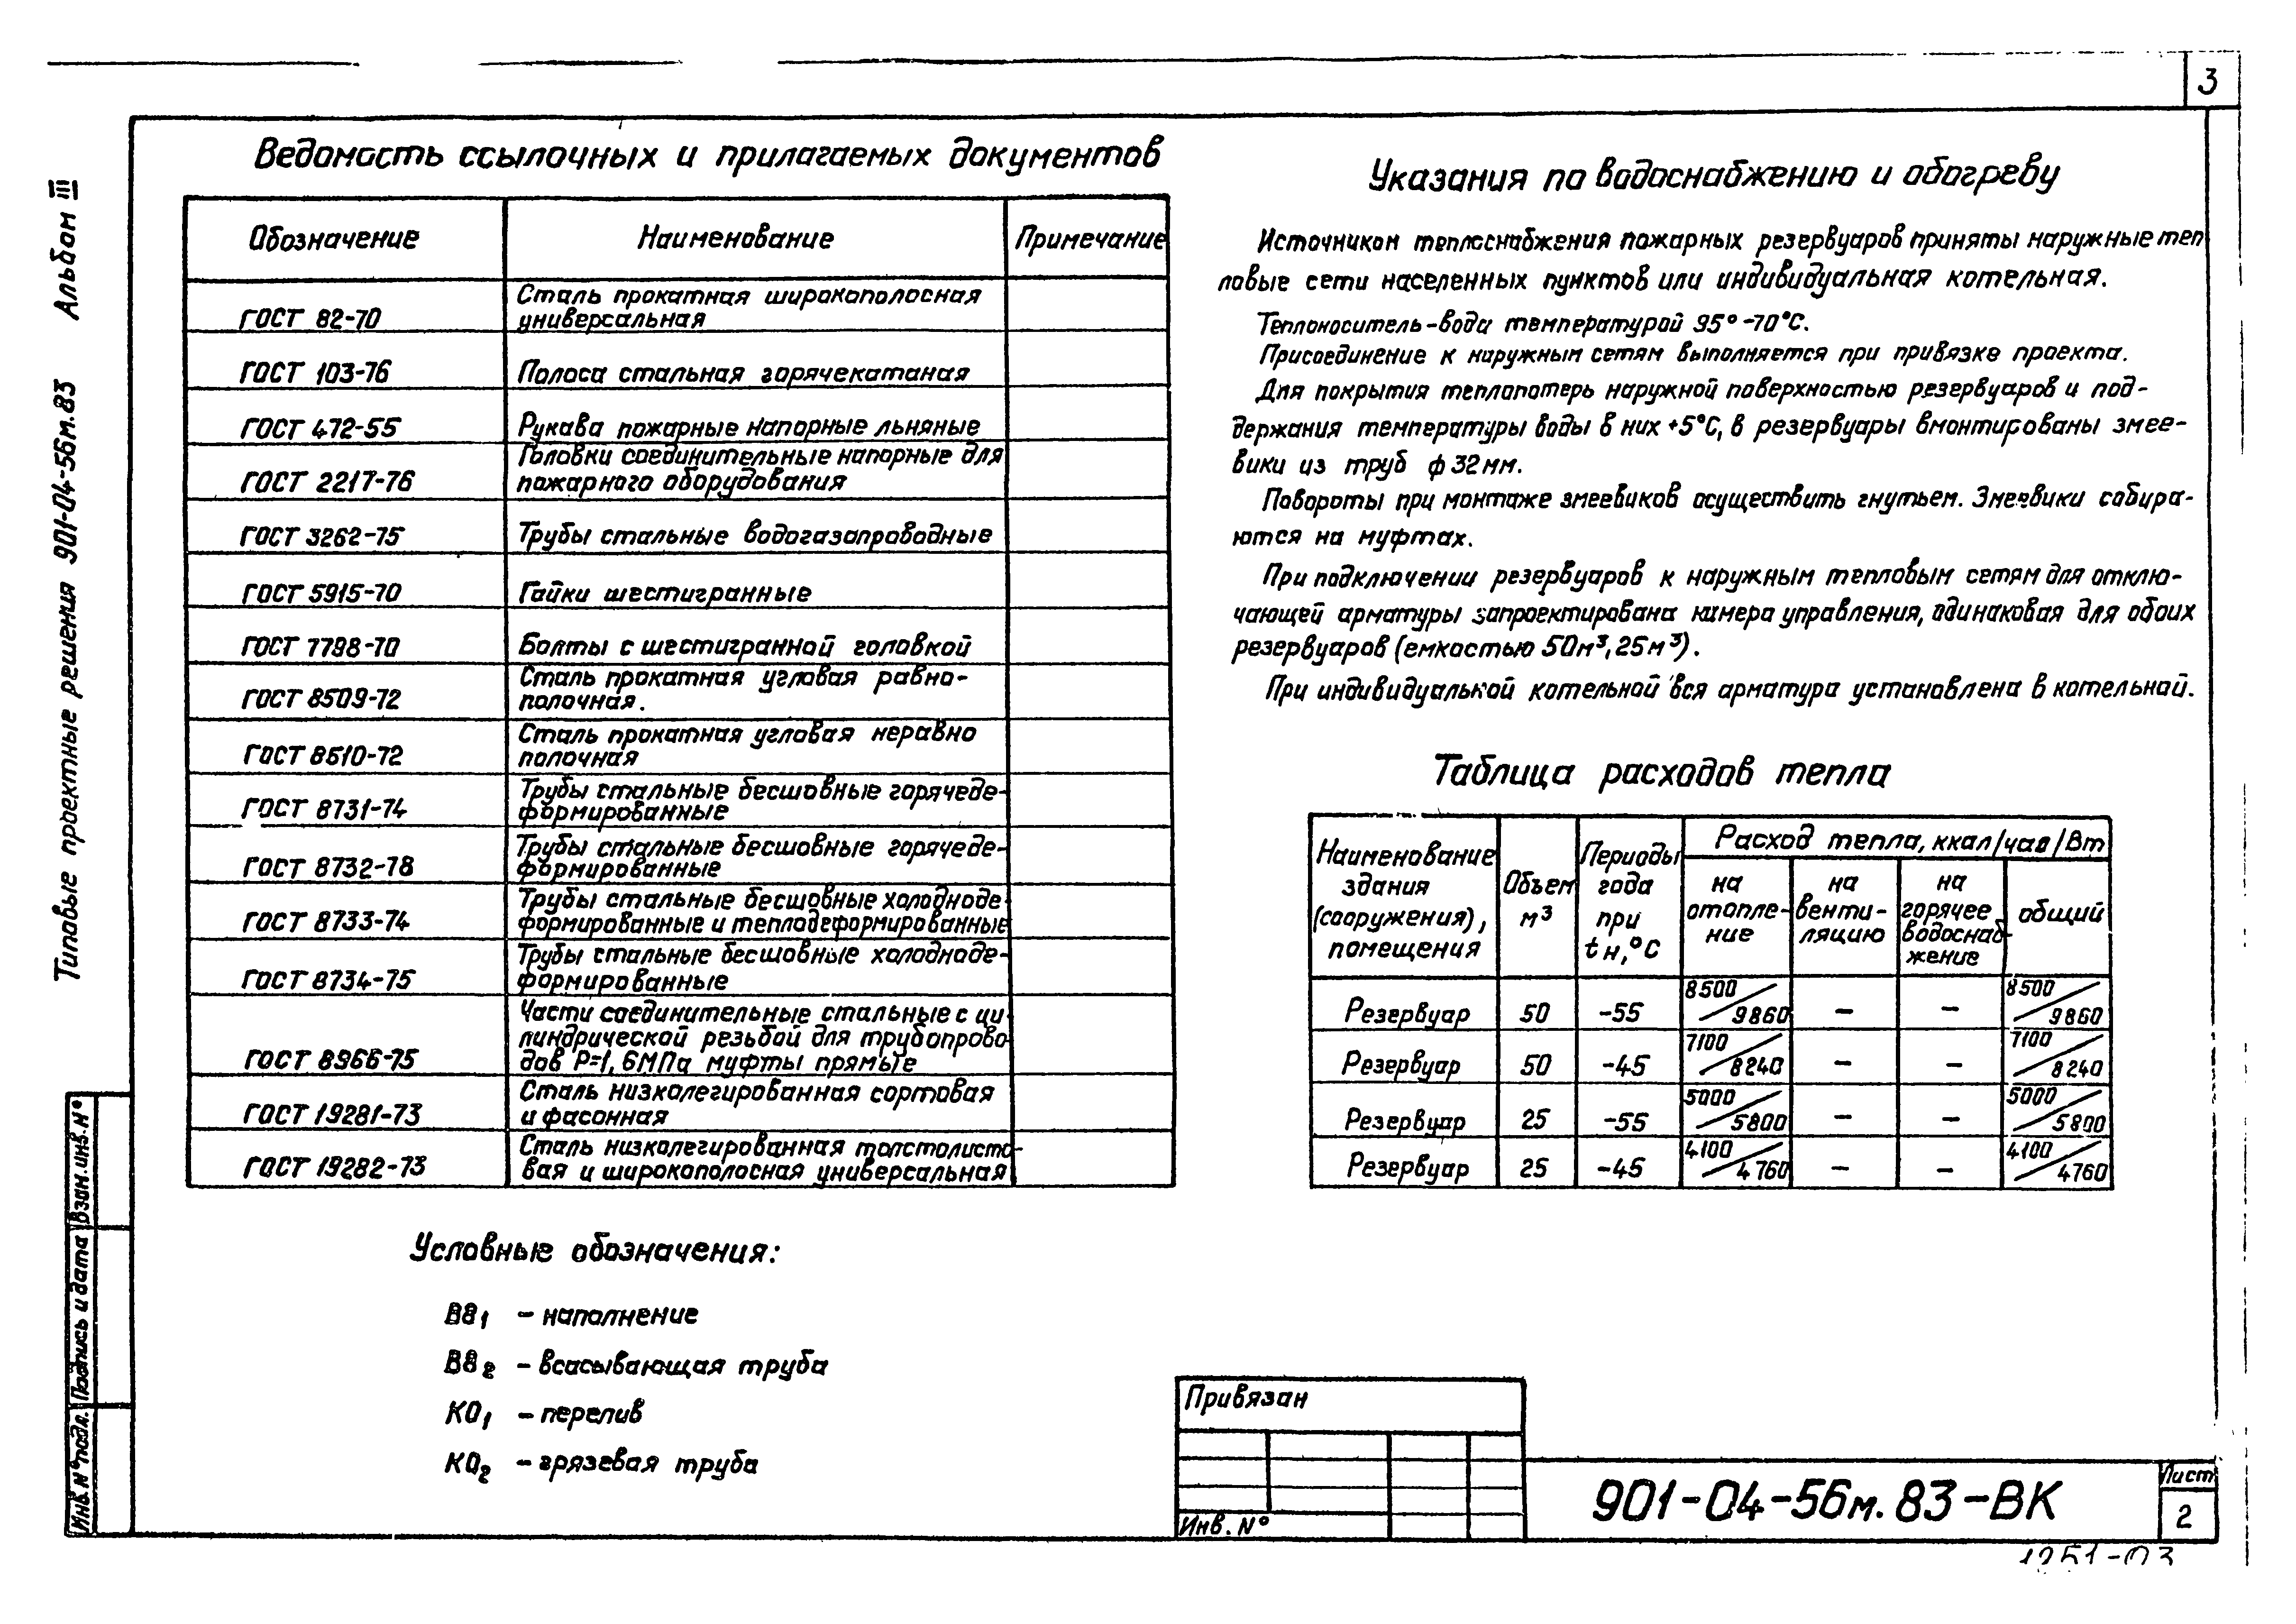 3
Альбом III
Типовые проектные решения 901-04-56м.83
Ведомость ссылочных и прилагаемых документов
Обозначение Наименование Примечание
ГОСТ 82-70 Сталь прокатная широкополосная
универсальная
ГОСТ 103-76 Полоса стальная горячекатаная
ГОСТ 472-55 Рукава пожарные напорные льняные
ГОСТ 2217-76 Головки соединительные напорные для
пожарного оборудования
ГОСТ 3262-75 Трубы стальные водогазапроводные
ГОСТ 5915-70 Гайки шестигранные
ГОСТ 7798-70 Болты с шестигранной головкой
ГОСТ 8509-72 Сталь прокатная угловая равно-
полочная.
ГОСТ 8510-72 Сталь прокатная угловая неравно
полочная
ГОСТ 8731-74 Трубы стальные бесшовные горячеде-
формированные
ГОСТ 8732-78 Трубы стальные бесшовные горячеде-
формированные
ГОСТ 8733-74 Трубы стальные бесшовные холодноде-
формированные и теплодеформированные
ГОСТ 8734-75 Трубы стальные бесшовные холодноде-
формированные
ГОСТ 8966-75 Части соединительные стальные с ци-
линдрической резьбой для трубопрово-
дов Р=1,6МПа муфты прямые
ГОСТ 19281-73 Сталь низколегированная сортовая
и фасонная
ГОСТ 19282-73 Сталь низколегированная толстолисто-
вая и широкополосная универсальная
Условные обозначения:
В8₁ - наполнение
В8₂ - всасывающая труба
КО₁ - перелив
КО₂ - грязевая труба
Указания по водоснабжению и обогреву
Источником теплоснабжения пожарных резервуаров приняты наружные теп
ловые сети населенных пунктов или индивидуальная котельная.
Теплоноситель-вода температурой 95°-70°С.
Присоединение к наружным сетям выполняется при привязке проекта.
Для покрытия теплопотерь наружной поверхностью резервуаров и под-
держания температуры воды в них +5°С, в резервуары вмонтированы змее-
вики из труб ф 32мм.
Повороты при монтаже змеевиков осуществить гнутьем. Змеевики собира-
ются на муфтах.
При подключении резервуаров к наружным тепловым сетям для отклю-
чающей арматуры запроектирована камера управления, одинаковая для обоих
резервуаров (емкостью 50м³, 25м³).
При индивидуальной котельной вся арматура установлена в котельной.
Таблица расходов тепла
Наименование здания (сооружения), помещения Объем м³ Периоды года при tн,°С Расход тепла, ккал/час/Вт
на отопле-ние на венти-ляцию на горячее водоснаб-жение общий
Резервуар 50 -55 8500/9860 - - 8500/9860
Резервуар 50 -45 7100/8240 - - 7100/8240
Резервуар 25 -55 5000/5800 - - 5000/5800
Резервуар 25 -45 4100/4760 - - 4100/4760
Привязан
Инв. N°
901-04-56м.83-ВК
Лист
2
Взам.инв.N°
Подпись и дата
Инв.N°подл.